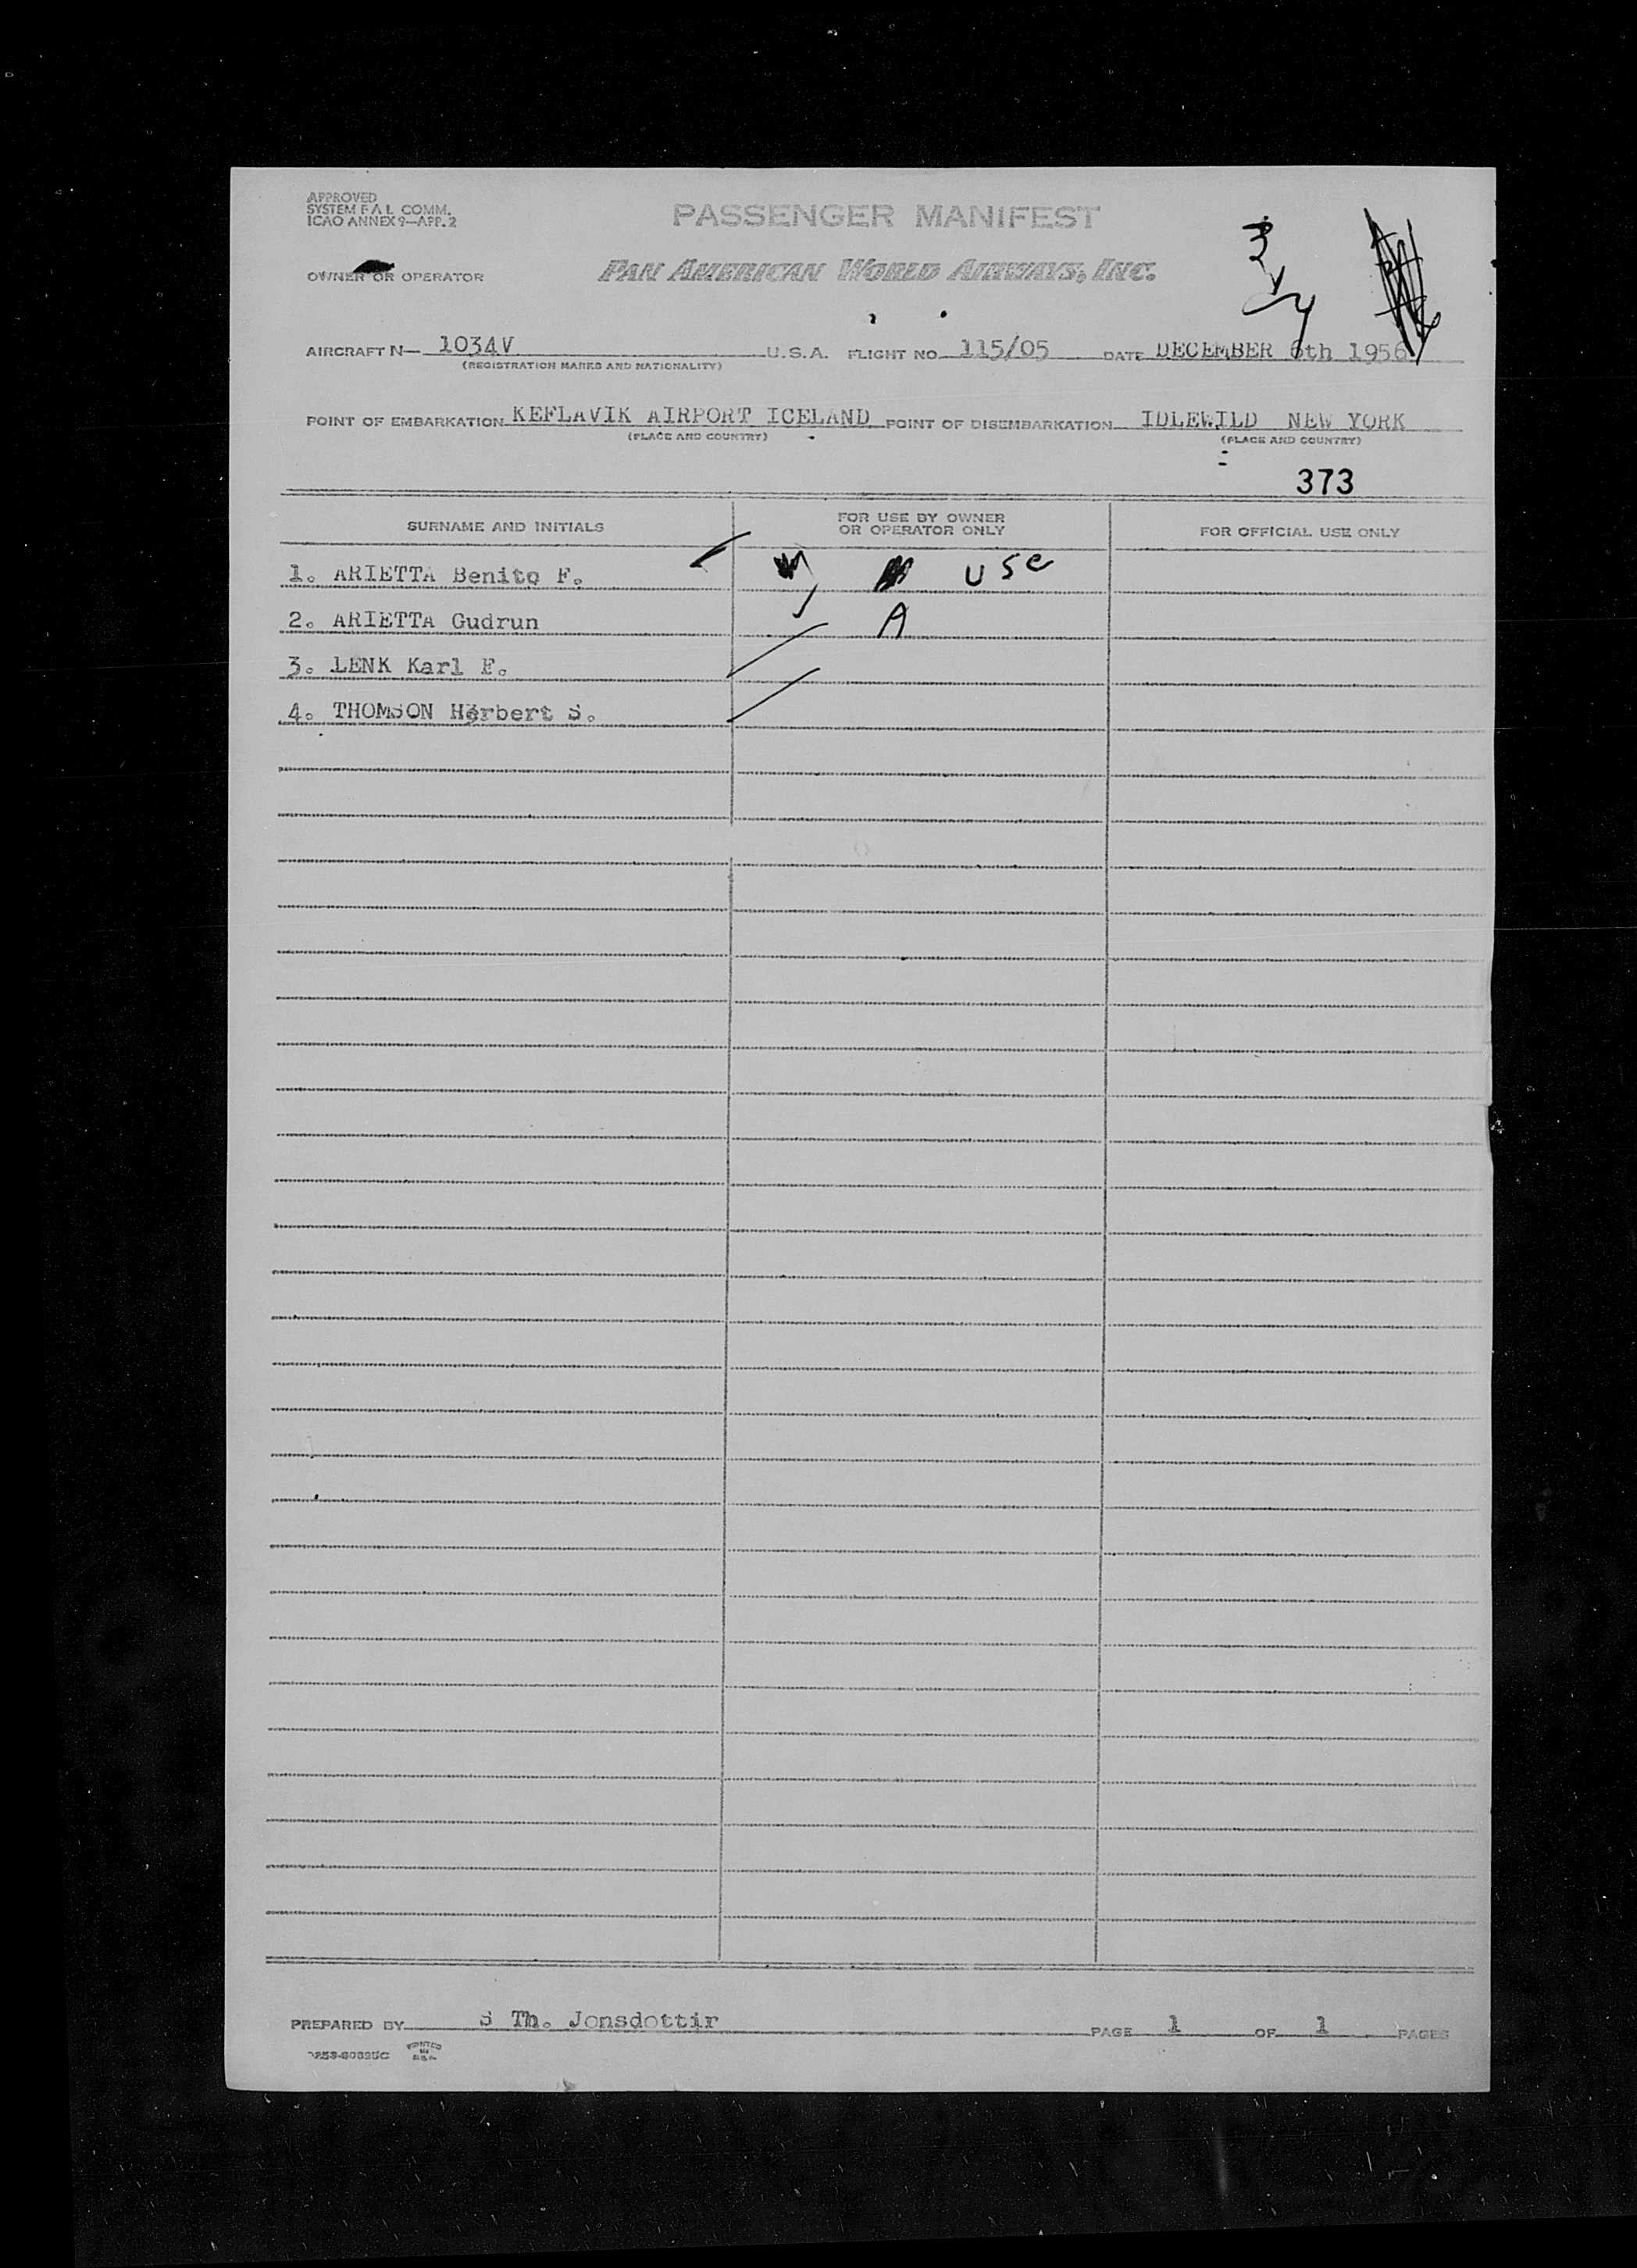 APPROVED
SYSTEM FAL COMM.
ICAO ANNEX 9—APP. 2
PASSENGER MANIFEST
OWNER OR OPERATOR PAN AMERICAN WORLD AIRWAYS, INC.
AIRCRAFT N— 1034V U.S.A. FLIGHT NO 115/05 DATE DECEMBER 6th 1956
(REGISTRATION MARKS AND NATIONALITY)
POINT OF EMBARKATION KEFLAVIK AIRPORT ICELAND POINT OF DISEMBARKATION IDLEWILD NEW YORK
(PLACE AND COUNTRY) (PLACE AND COUNTRY)
373
SURNAME AND INITIALS FOR USE BY OWNER OR OPERATOR ONLY FOR OFFICIAL USE ONLY
1. ARIETTA Benito F. USC
2. ARIETTA Gudrun A
3. LENK Karl F.
4. THOMSON Herbert S.
PREPARED BY S Th. Jonsdottir PAGE 1 OF 1 PAGES
PRINTED
IN
U.S.A.